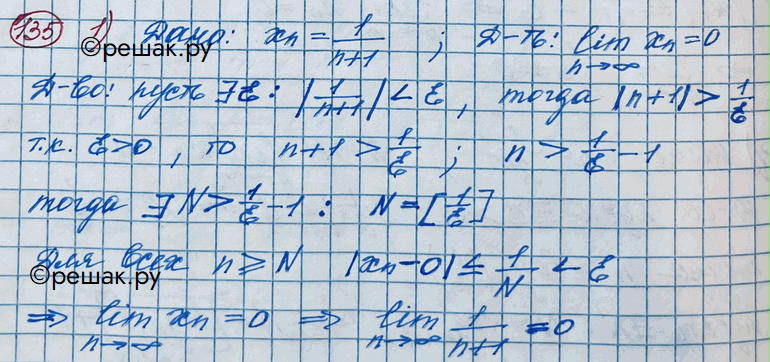 135 1) Дано: xₙ = 1/(n+1) ; Д-ть: lim xₙ = 0
n→∞
©решак.ру
Д-во: пусть ∃ε: |1/(n+1)| < ε, тогда |n+1| > 1/ε
т.к. ε>0, то n+1 > 1/ε ; n > 1/ε - 1
тогда ∃ N > 1/ε - 1 : N = [1/ε]
Для всех n ⩾ N |xₙ - 0| ≤ 1/N < ε
©решак.ру
⇒ lim xₙ = 0 ⇒ lim 1/(n+1) = 0
n→∞ n→∞